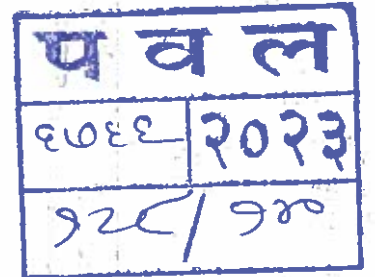 प व ल
६७६६ २०२३
१२८/१४०